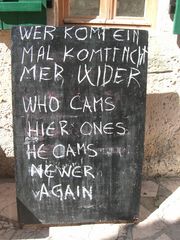 WER KOMT EIN
MAL KOMTT NICHT
MER WIDER
WHO CAMS
HIER ONES
HE CAMS
NEWER
AGAIN